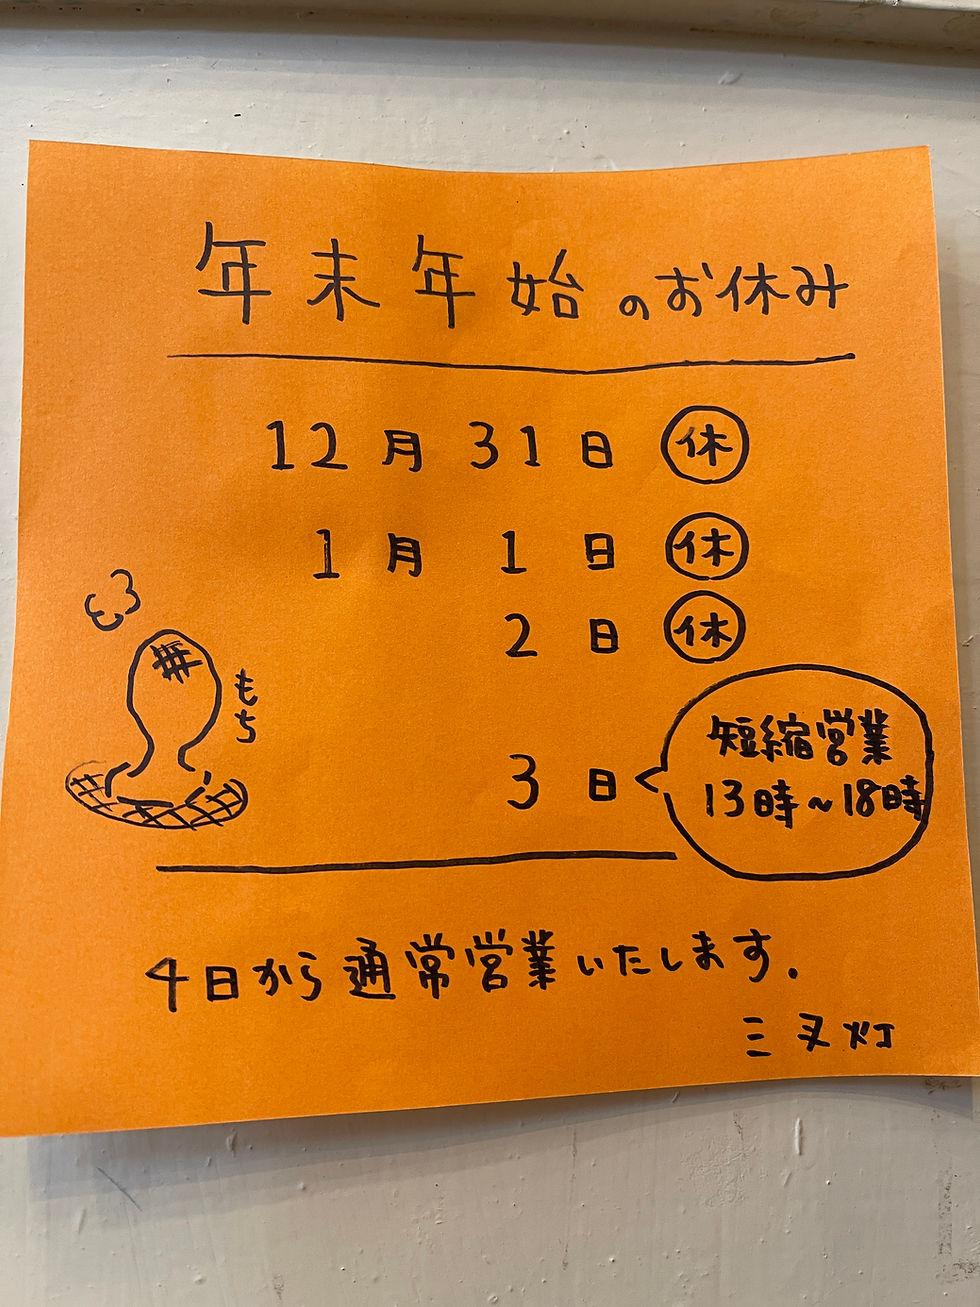 年末年始のお休み
12月31日 ㊡
1月1日 ㊡
2日 ㊡
もち
3日
短縮営業
13時~18時
4日から通常営業いたします.
三叉灯